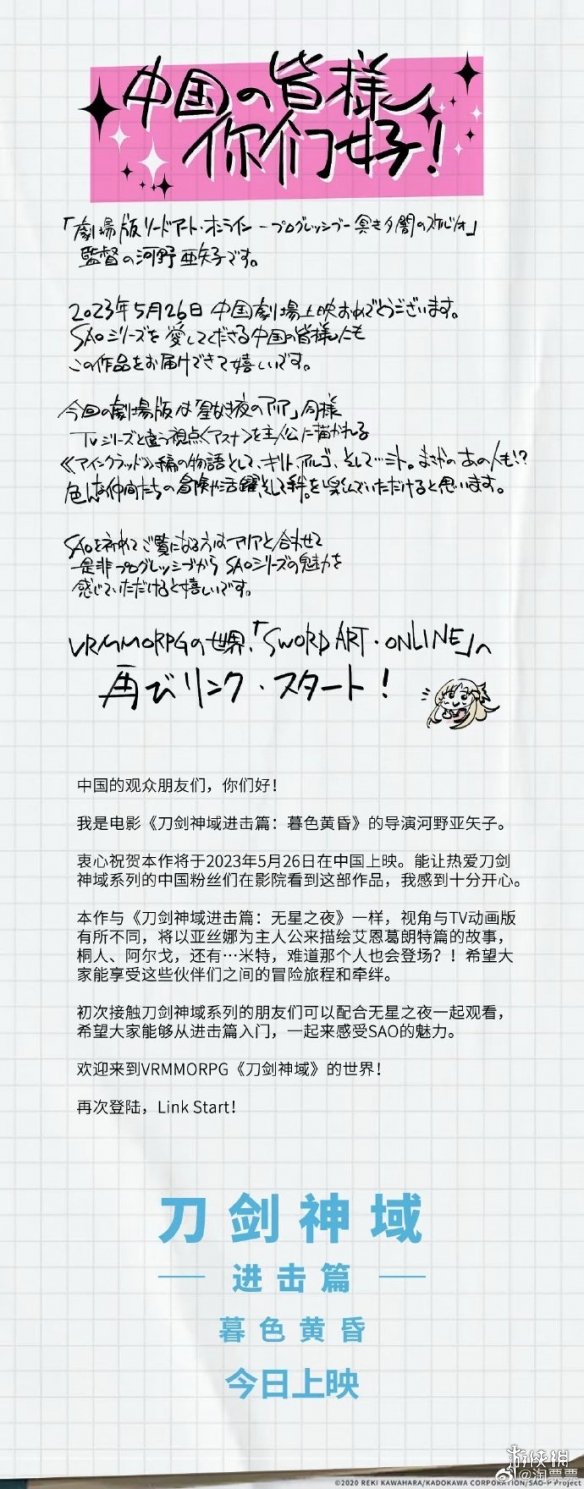 中国の皆様
你们好！
「劇場版ソードアート・オンライン －プログレッシブ－ 冥き夕闇のスケルツォ」
監督の河野亜矢子です。
2023年5月26日 中国劇場上映おめでとうございます。
SAOシリーズを愛してくださる中国の皆様にも
この作品をお届けできて嬉しいです。
今回の劇場版は「星なき夜のアリア」同様
TVシリーズと違う視点〈アスナ〉を主人公に描かれる
《アインクラッド》編の物語として、キリト、アルゴ、そして…ミト。まさかのあの人も!?
色んな仲間たちの冒険や活躍、そして絆。を楽しんでいただけると思います。
SAOを初めてご覧になる方はアリアと合わせて
是非プログレッシブからSAOシリーズの魅力を
感じていただけると嬉しいです。
VRMMORPGの世界、「SWORD ART・ONLINE」へ
再びリンク・スタート！
中国的观众朋友们，你们好！
我是电影《刀剑神域进击篇：暮色黄昏》的导演河野亚矢子。
衷心祝贺本作将于2023年5月26日在中国上映。能让热爱刀剑
神域系列的中国粉丝们在影院看到这部作品，我感到十分开心。
本作与《刀剑神域进击篇：无星之夜》一样，视角与TV动画版
有所不同，将以亚丝娜为主人公来描绘艾恩葛朗特篇的故事，
桐人、阿尔戈，还有…米特，难道那个人也会登场？！希望大
家能享受这些伙伴们之间的冒险旅程和牵绊。
初次接触刀剑神域系列的朋友们可以配合无星之夜一起观看，
希望大家能够从进击篇入门，一起来感受SAO的魅力。
欢迎来到VRMMORPG《刀剑神域》的世界！
再次登陆，Link Start！
刀剑神域
进击篇
暮色黄昏
今日上映
游侠网
@淘票票
©2020 REKI KAWAHARA/KADOKAWA CORPORATION/SAO-P Project